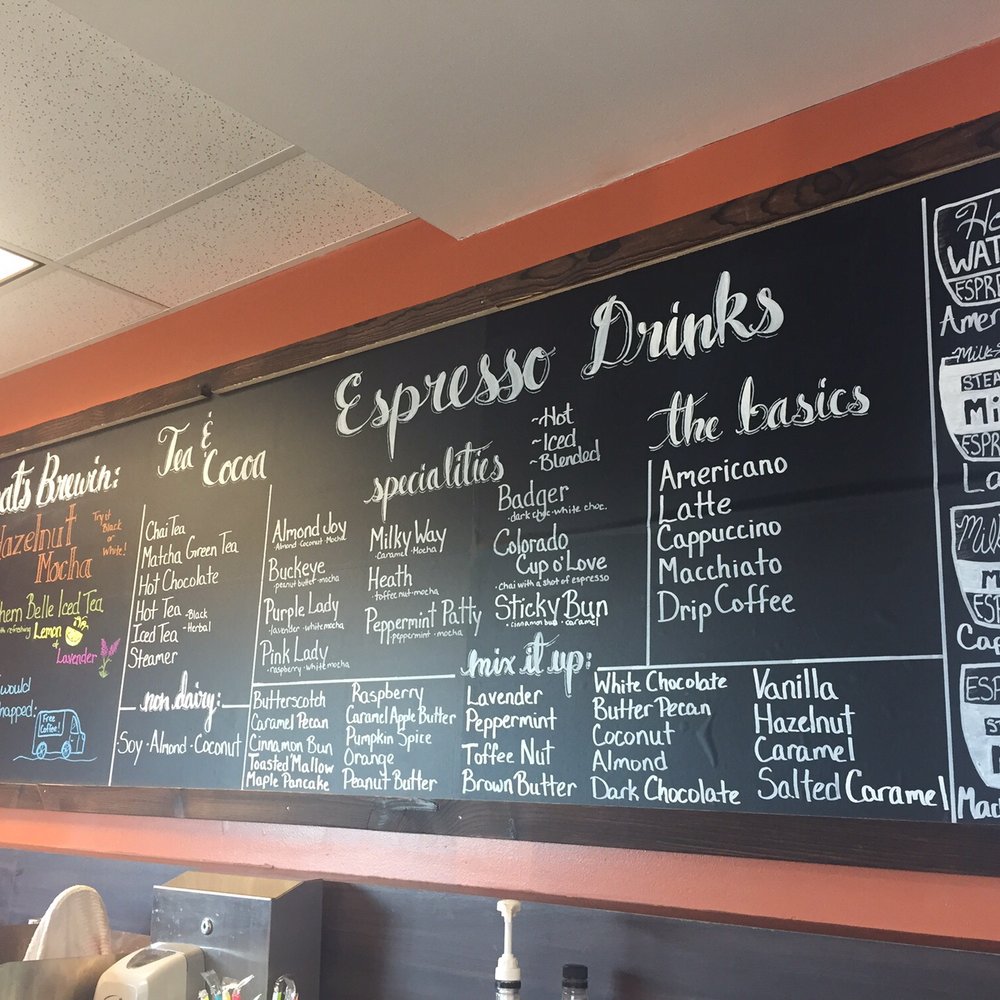 Brewin:
Hazelnut
Mocha
Try it
Black
or
White!
Belle Iced Tea
with refreshing Lemon
&
Lavender
would
Free
Coffee!
Tea &
Cocoa
Chai Tea
Matcha Green Tea
Hot Chocolate
Hot Tea -Black
Iced Tea -Herbal
Steamer
non dairy:
Soy · Almond · Coconut
Espresso Drinks
~Hot
~Iced
~Blended
specialities
Almond Joy
Almond Coconut Mocha
Buckeye
peanut butter mocha
Purple Lady
lavender white mocha
Pink Lady
raspberry white mocha
Milky Way
Caramel Mocha
Heath
toffee nut mocha
Peppermint Patty
peppermint mocha
Badger
dark choc white choc.
Colorado
Cup o' Love
chai with a shot of espresso
Sticky Bun
cinnamon bun caramel
the basics
Americano
Latte
Cappuccino
Macchiato
Drip Coffee
mix it up:
Butterscotch
Caramel Pecan
Cinnamon Bun
Toasted Mallow
Maple Pancake
Raspberry
Caramel Apple Butter
Pumpkin Spice
Orange
Peanut Butter
Lavender
Peppermint
Toffee Nut
Brown Butter
White Chocolate
Butter Pecan
Coconut
Almond
Dark Chocolate
Vanilla
Hazelnut
Caramel
Salted Caramel